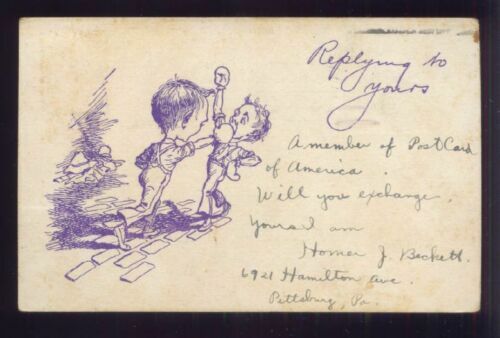 Replying to
yours
A member of Post Card
of America.
Will you exchange.
Yours I am
Homer J. Beckett.
6921 Hamilton ave.
Pittsburg, Pa.